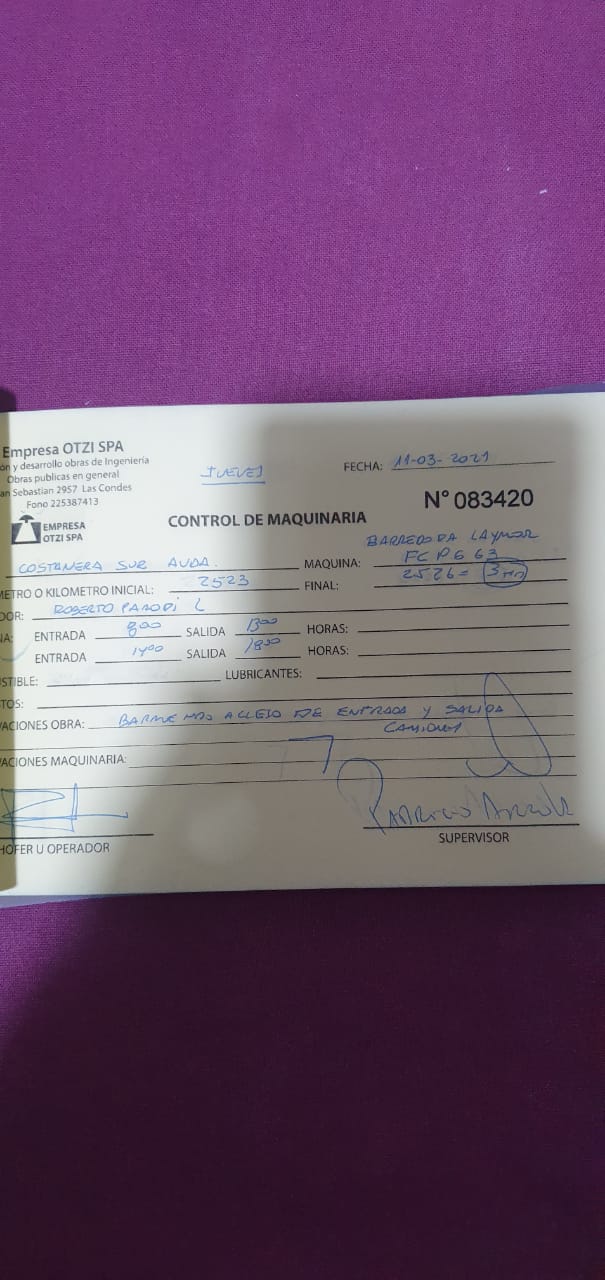 Empresa OTZI SPA
ón y desarrollo obras de Ingeniería
Obras publicas en general
an Sebastian 2957. Las Condes
Fono 225387413
EMPRESA
OTZI SPA
JUEVES
FECHA: 11-03-2021
N° 083420
CONTROL DE MAQUINARIA
BARREDORA LAYMOR
COSTANERA SUR AVDA. MAQUINA: FCPG 63
METRO O KILOMETRO INICIAL: 2523 FINAL: 2526= 3 Hrs
DOR: ROBERTO PARODI L
NA: ENTRADA 800 SALIDA 1300 HORAS:
ENTRADA 1400 SALIDA 1800 HORAS:
STIBLE: LUBRICANTES:
TOS:
ACIONES OBRA: ACCESO DE ENTRADA Y SALIDA
CAMIONES
ACIONES MAQUINARIA:
HOFER U OPERADOR
SUPERVISOR